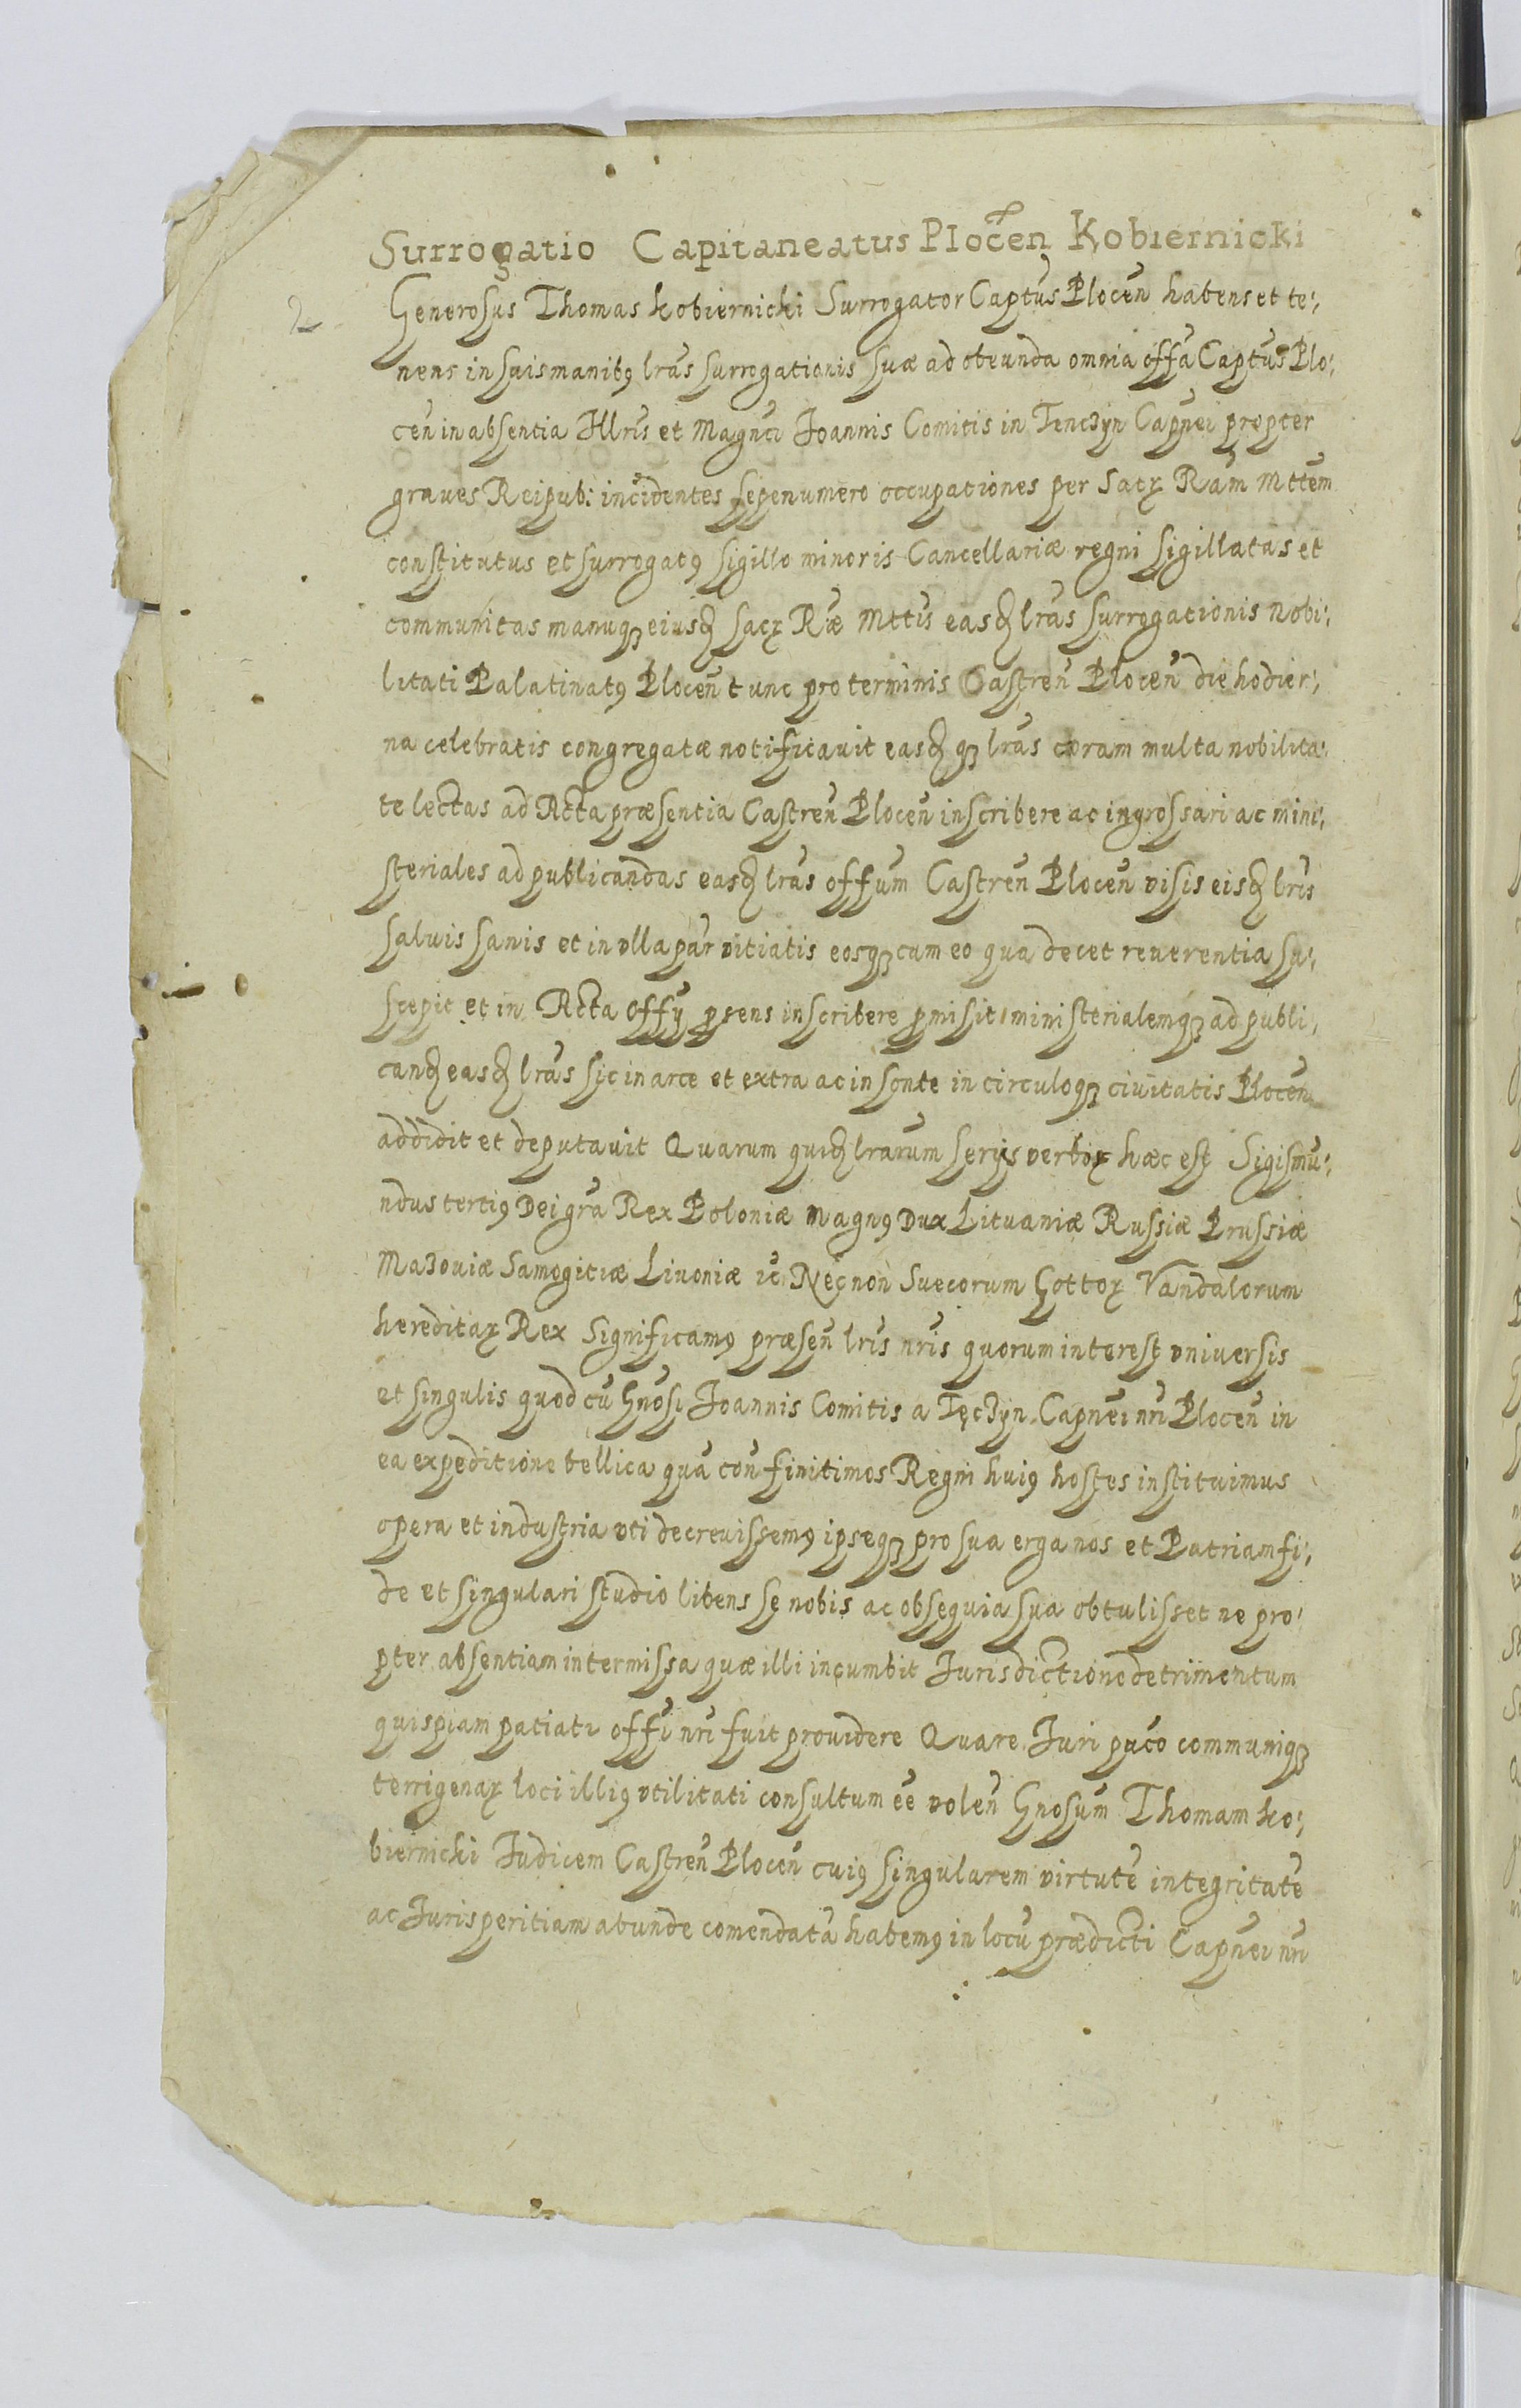 Surrogatio Capitaneatus Plocen̄ Kobiernicki
2
Generosus Thomas Kobiernicki Surrogator Captūs Plocen̄ habens et te:,
nens in suis manibꝯ lrās surrogationis suæ ad obeunda omnia offā Captūs Plo:,
cen̄ in absentia Illrīs et Magnci Joannis Comitis in Tenczyn Capnēi propter
graues Reipub: incidentes sepenumero occupationes per Sacꝝ Rām Mttēm
constitutus et surrogatꝯ sigillo minoris Cancellariæ regni sigillatas et
communitas manuqꝫ eiusꝺ sacꝝ Rīæ Mttīs easꝺ lrās surrogationis Nobi:,
litati Palatinatꝯ Plocen̄ tunc pro terminis Castren̄ Plocen̄ die hodier:,
na celebratis congregatæ notificauit easꝺqꝫ lrās coram multa nobilita:,
te lectas ad Acta præsentia Castren̄ Plocen̄ inscribere ac ingrossari ac mini:,
steriales ad publicandas easꝺ lrās offūm Castren̄ Plocen̄ visis eisꝺ lrīs
saluis sanis et in vlla pār vitiatis eosqꝫ cum eo qua decet reuerentia su:,
scepit et in Acta offÿ p̱sens inscribere p̱misit ministerialemqꝫ ad publi:,
canꝺ easꝺ lrās sic in arce et extra ac in fonte in circuloqꝫ ciuitatis Plocen̄
addidit et deputauit Quarum quiꝺ lrārum serijs verboꝝ hæc est Sigismū:,
ndus tertiꝯ Dei grā Rex Poloniæ Magnꝯ Dux Lituaniæ Russiæ Prussiæ
Mazouiæ Samogitiæ Liuoniæ ic̄ Necnon Suecorum Gottoꝝ Vandalorum
hereditaꝝ Rex Significamꝯ præsen̄ lrīs nrīs quorum interest vniuersis
et singulis quod cū Gnōsi Joannis Comitis a Tęczyn Capnēi nrī Plocen̄ in
ea expeditione bellica quā con̄ finitimos Regni huiꝯ hostes instituimus
opera et industria vti decreuissemꝯ ipseqꝫ pro sua erga nos et Patriam fi:,
de et singulari studio libens se nobis ac obsequia sua obtulisset ne pro:,
pter absentiam intermissa quæ illi incumbit Jurisdictione detrimentum
quispiam patiatr offī nrī fuit prouidere Quare Juri pūco communiqꝫ
terrigenaꝝ loci illiꝯ vtilitati consultum ēē volen̄ Gnosūm Thomam Ko:,
biernicki Judicem Castren̄ Plocen̄ cuiꝯ singularem virtutē integritatē
ac Jurisperitiam abunde comendatā habemꝯ in locū prædicti Capnēi nrī